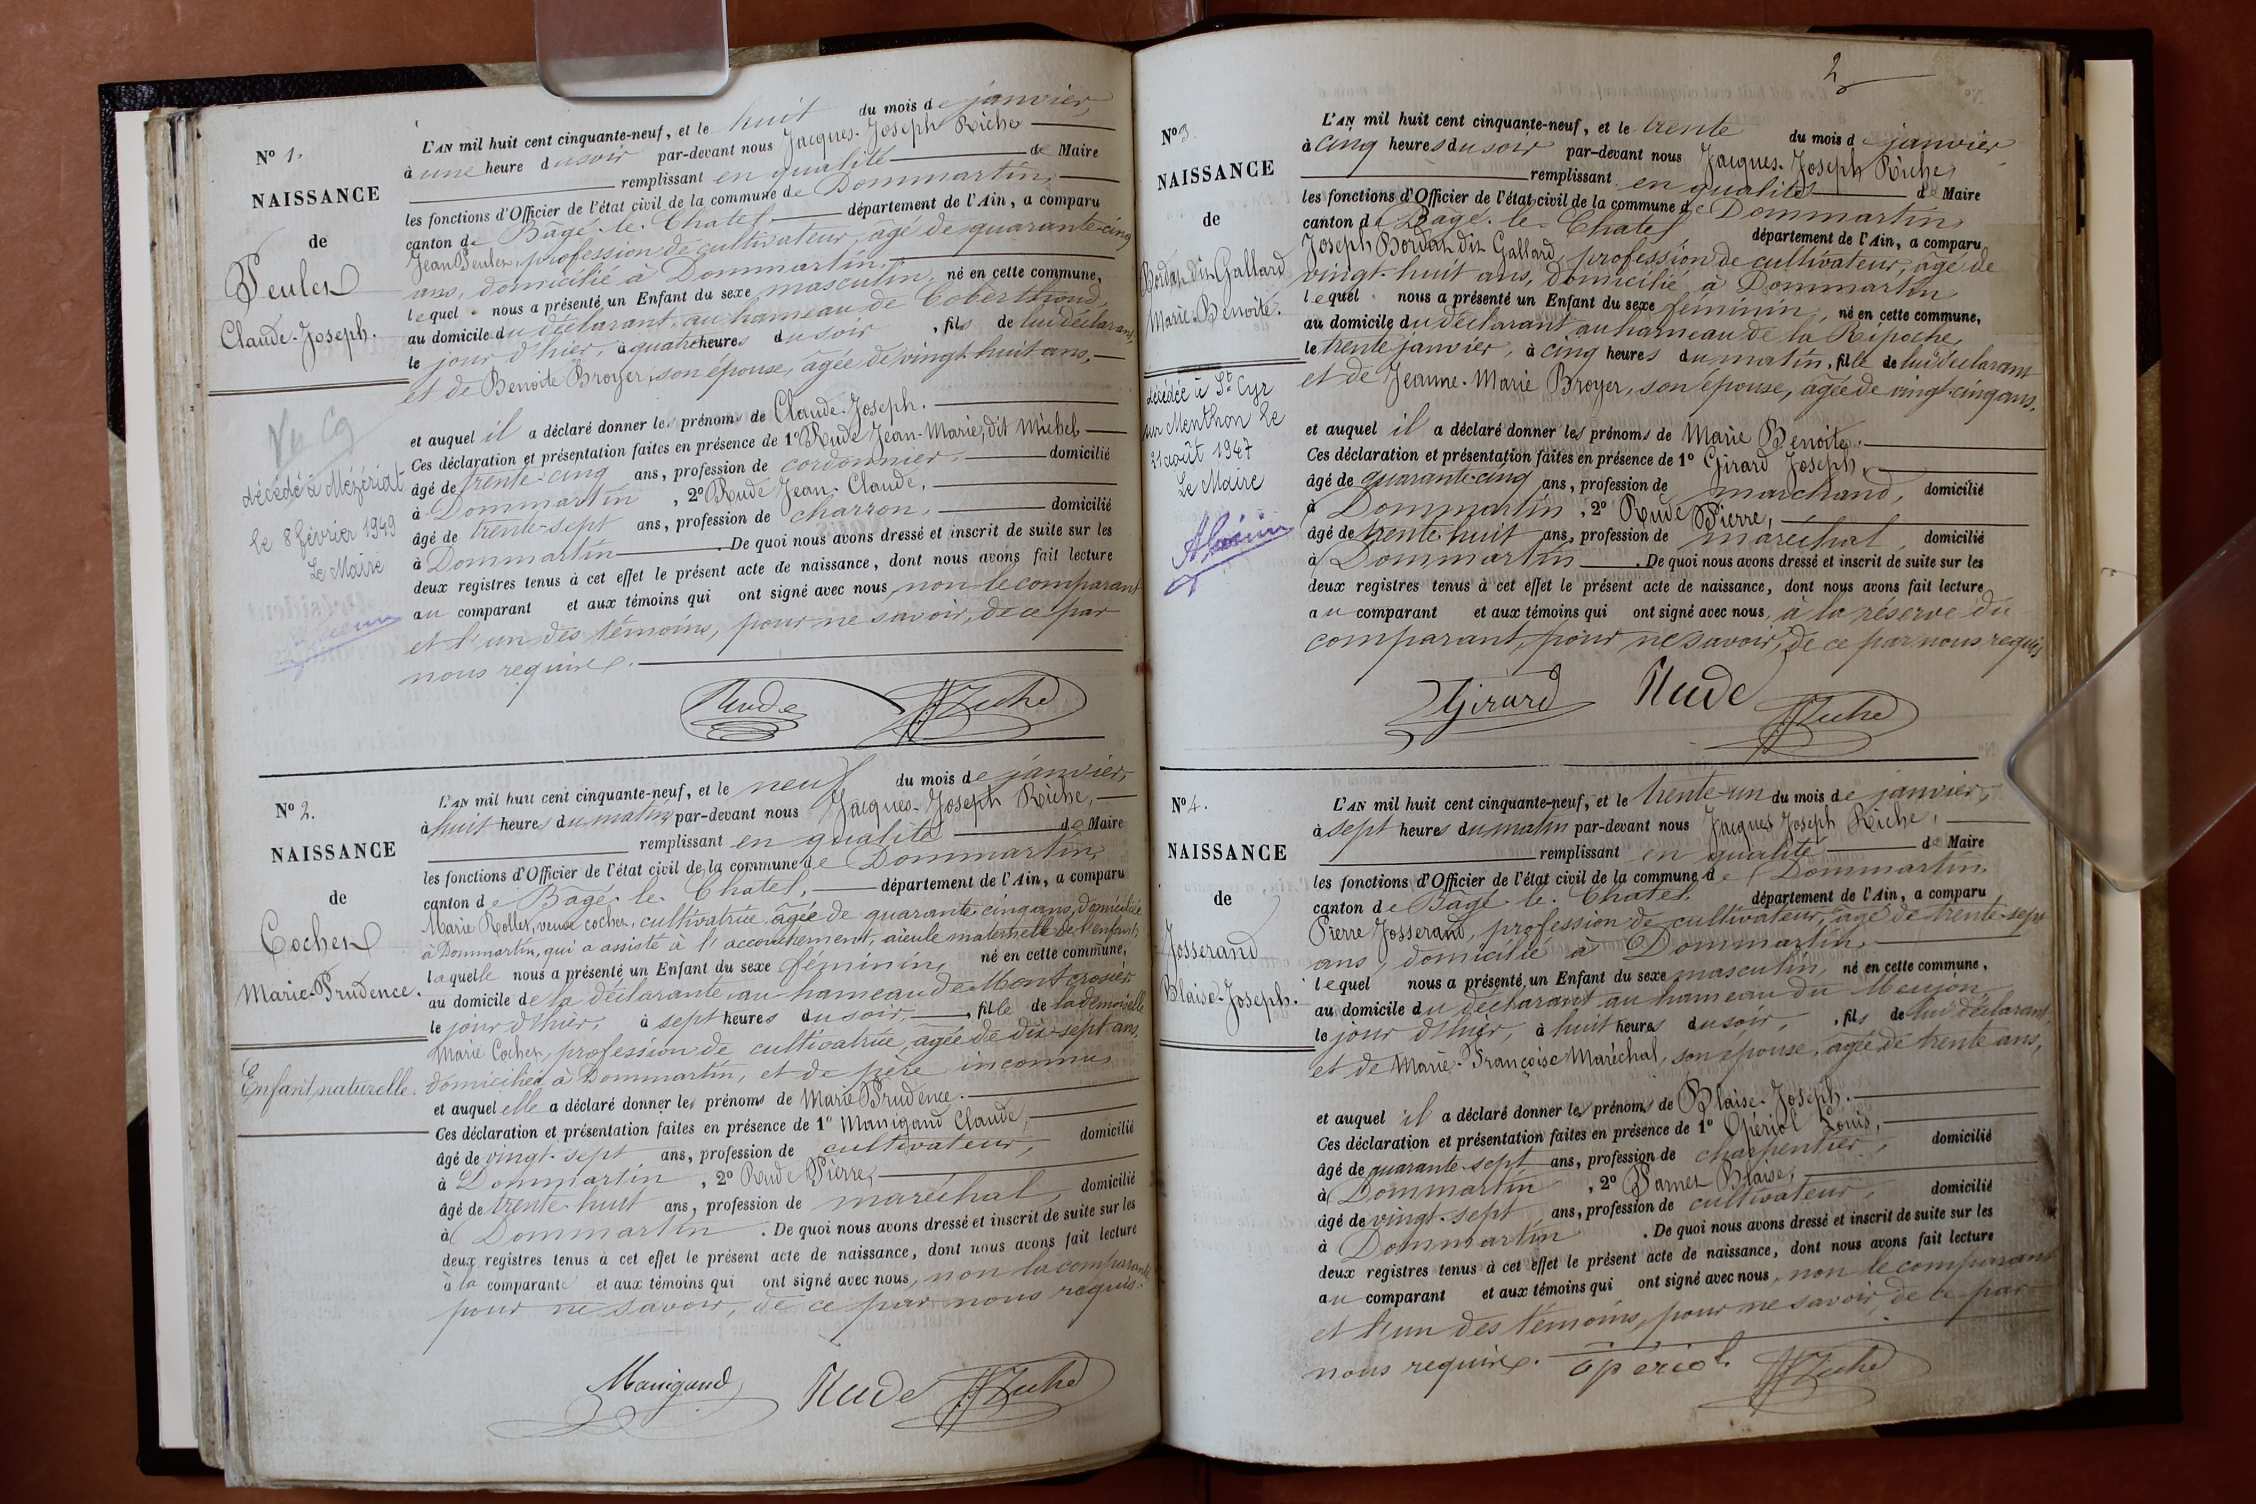 N° 1.
NAISSANCE
de
Peulet
Claude-Joseph.
Vu
décédé à Mézériat
le 8 février 1949
Le Maire
L'AN mil huit cent cinquante-neuf, et le huit du mois de janvier,
à une heure du soir par-devant nous Jacques-Joseph Riche
remplissant en qualité de Maire
les fonctions d'Officier de l'état civil de la commune de Dommartin,
canton de Bâgé-le-Chatel département de l'Ain, a comparu
Jean Peulet, profession de cultivateur, âgé de quarante-cinq
ans, domicilié à Dommartin,
lequel nous a présenté un Enfant du sexe masculin, né en cette commune,
au domicile du déclarant, au hameau de
le jour d'hier, à quatre heures du soir, fils de lui déclarant,
et de Benoite Broyer, son épouse, âgée de vingt-huit ans,
et auquel il a déclaré donner les prénoms de Claude-Joseph.
Ces déclaration et présentation faites en présence de 1° Rude Jean-Marie, dit Michel
âgé de trente-cinq ans, profession de cordonnier, domicilié
à Dommartin, 2° Rude Jean-Claude,
âgé de trente-sept ans, profession de charron, domicilié
à Dommartin. De quoi nous avons dressé et inscrit de suite sur les
deux registres tenus à cet effet le présent acte de naissance, dont nous avons fait lecture
au comparant et aux témoins qui ont signé avec nous, non le comparant
et l'un des témoins, pour ne savoir, de ce par
nous requis.
Rude Riche
N° 2.
NAISSANCE
de
Cochet
Marie-Prudence.
Enfant naturelle.
L'AN mil huit cent cinquante-neuf, et le neuf du mois de janvier,
à huit heures du matin par-devant nous Jacques-Joseph Riche,
remplissant en qualité de Maire
les fonctions d'Officier de l'état civil de la commune de Dommartin,
canton de Bâgé-le-Chatel, département de l'Ain, a comparu
Marie Rollet, veuve cochet, cultivatrice âgée de quarante-cinq ans, domiciliée
à Dommartin, qui a assisté à l'accouchement, aïeule maternelle de l'enfant,
laquelle nous a présenté un Enfant du sexe féminin, né en cette commune,
au domicile de la déclarante, au hameau de Montcrosier
le jour d'hier, à sept heures du soir, fille de la demoiselle
Marie Cochet, profession de cultivatrice, âgée de dix-sept ans,
domiciliée à Dommartin, et de père inconnu
et auquel elle a déclaré donner les prénoms de Marie Prudence.
Ces déclaration et présentation faites en présence de 1° Manigand Claude,
âgé de vingt-sept ans, profession de cultivateur, domicilié
à Dommartin, 2° Rude Pierre,
âgé de trente-huit ans, profession de maréchal, domicilié
à Dommartin. De quoi nous avons dressé et inscrit de suite sur les
deux registres tenus à cet effet le présent acte de naissance, dont nous avons fait lecture
à la comparante et aux témoins qui ont signé avec nous, non la comparante
pour ne savoir, de ce par nous requis.
Manigand Rude Riche
2
N° 3.
NAISSANCE
de
Bordat dit Gallard
Marie-Benoite.
décédée à St Cyr
sur Menthon le
21 août 1947
Le Maire
L'AN mil huit cent cinquante-neuf, et le trente du mois de janvier
à cinq heures du soir par-devant nous Jacques-Joseph Riche,
remplissant en qualité de Maire
les fonctions d'Officier de l'état civil de la commune de Dommartin,
canton de Bâgé-le-Chatel département de l'Ain, a comparu
Joseph Bordat dit Gallard, profession de cultivateur, âgé de
vingt-huit ans, domicilié à Dommartin
lequel nous a présenté un Enfant du sexe féminin, né en cette commune,
au domicile du déclarant au hameau de la Ripoche,
le trente janvier, à cinq heures du matin, fille de lui déclarant
et de Jeanne-Marie Broyer, son épouse, âgée de vingt-cinq ans.
et auquel il a déclaré donner les prénoms de Marie Benoite.
Ces déclaration et présentation faites en présence de 1° Girard Joseph,
âgé de quarante-cinq ans, profession de marchand, domicilié
à Dommartin, 2° Rude Pierre,
âgé de trente-huit ans, profession de maréchal domicilié
à Dommartin. De quoi nous avons dressé et inscrit de suite sur les
deux registres tenus à cet effet le présent acte de naissance, dont nous avons fait lecture
au comparant et aux témoins qui ont signé avec nous, à la réserve du
comparant, pour ne savoir, de ce par nous requis
Girard Rude Riche
N° 4.
NAISSANCE
de
Josserand
Blaise-Joseph.
L'AN mil huit cent cinquante-neuf, et le trente-un du mois de janvier,
à sept heures du matin par-devant nous Jacques Joseph Riche,
remplissant en qualité de Maire
les fonctions d'Officier de l'état civil de la commune de Dommartin
canton de Bâgé-le-Chatel. département de l'Ain, a comparu
Pierre Josserand, profession de cultivateur, âgé de trente-sept
ans, domicilié à Dommartin,
lequel nous a présenté un Enfant du sexe masculin, né en cette commune,
au domicile du déclarant au hameau du Meujon
le jour d'hier, à huit heures du soir, fils de lui déclarant
et de Marie-Françoise Maréchal, son épouse, âgée de trente ans,
et auquel il a déclaré donner les prénoms de Blaise-Joseph.
Ces déclaration et présentation faites en présence de 1° Opériol Louis,
âgé de quarante-sept ans, profession de charpentier, domicilié
à Dommartin, 2° Pamet Blaise,
âgé de vingt-sept ans, profession de cultivateur, domicilié
à Dommartin. De quoi nous avons dressé et inscrit de suite sur les
deux registres tenus à cet effet le présent acte de naissance, dont nous avons fait lecture
au comparant et aux témoins qui ont signé avec nous, non le comparant
et l'un des témoins, pour ne savoir, de ce par
nous requis. opériol Riche